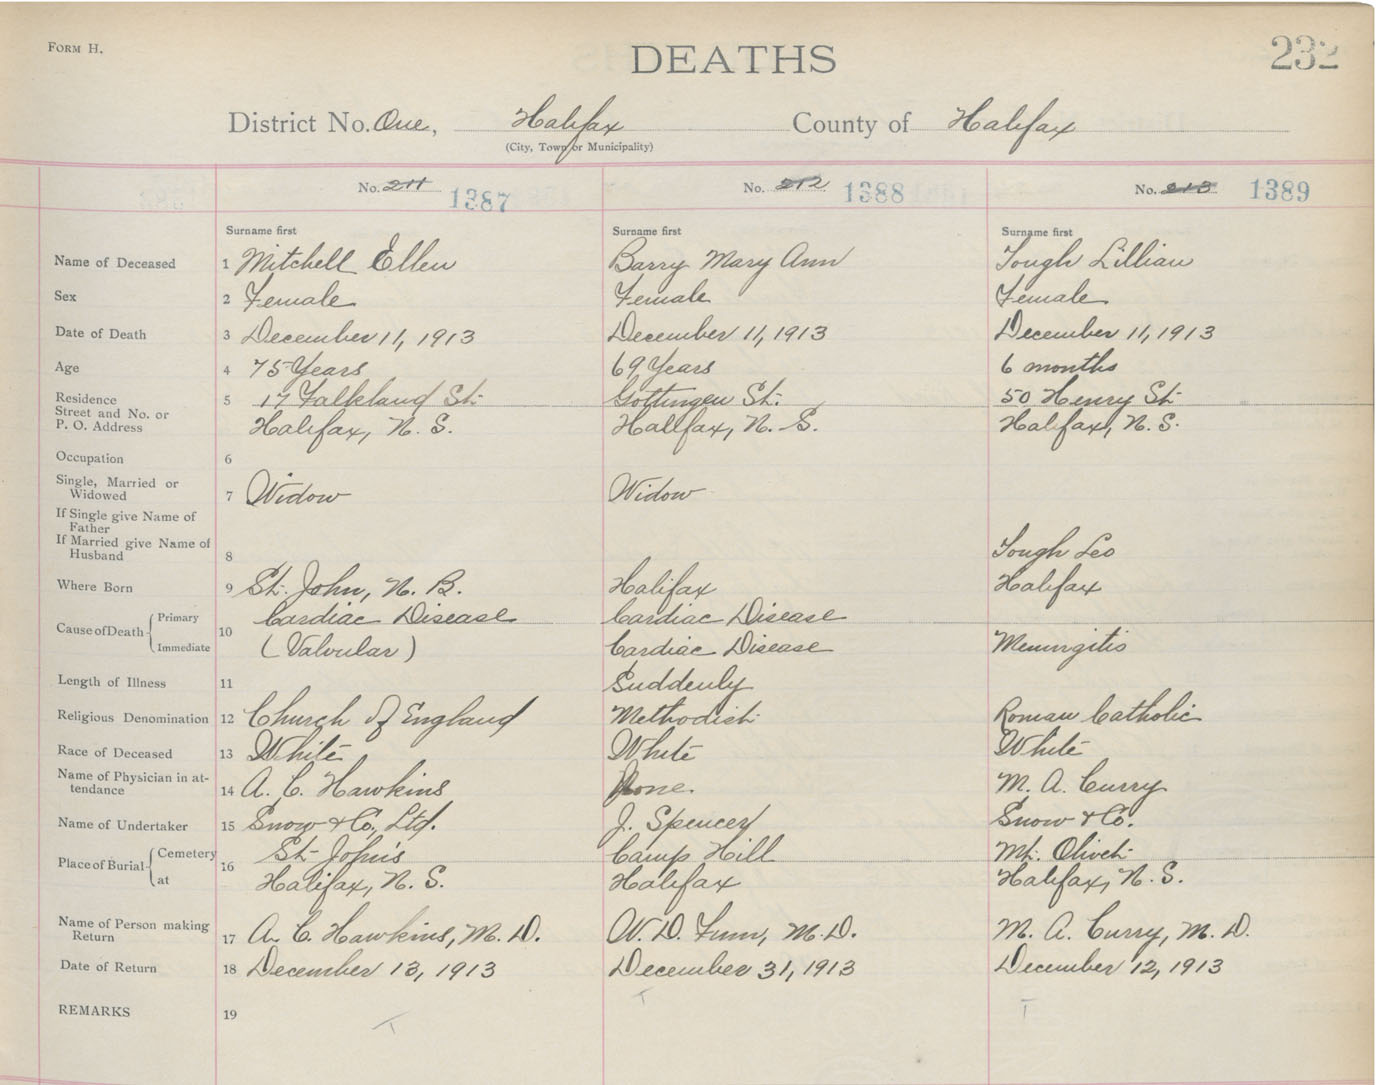 FORM H.
DEATHS
232
District No. One, Halifax County of Halifax
(City, Town or Municipality)
No. 211 1387 No. 212 1388 No. 213 1389
Surname first Surname first Surname first
Name of Deceased 1 Mitchell Ellen Barry Mary Ann Tough Lillian
Sex 2 Female Female Female
Date of Death 3 December 11, 1913 December 11, 1913 December 11, 1913
Age 4 75 Years 69 Years 6 months
Residence 5 17 Falkland St. Gottingen St. 50 Henry St.
Street and No. or
P. O. Address Halifax, N. S. Halifax, N. S. Halifax, N. S.
Occupation 6
Single, Married or
Widowed 7 Widow Widow
If Single give Name of
Father
If Married give Name of
Husband 8 Tough Leo
Where Born 9 St. John, N. B. Halifax Halifax
Cause of Death Primary 10 Cardiac Disease Cardiac Disease
Immediate (Valvular) Cardiac Disease Meningitis
Length of Illness 11 Suddenly
Religious Denomination 12 Church of England Methodist Roman Catholic
Race of Deceased 13 White White White
Name of Physician in at-
tendance 14 A. C. Hawkins None. M. A. Curry
Name of Undertaker 15 Snow & Co., Ltd. J. Spencer Snow & Co.
Place of Burial Cemetery 16 St. John's Camp Hill Mt. Olivet
at Halifax, N. S. Halifax Halifax, N. S.
Name of Person making
Return 17 A. C. Hawkins, M. D. W. D. Finn, M. D. M. A. Curry, M. D.
Date of Return 18 December 13, 1913 December 31, 1913 December 12, 1913
REMARKS 19
T T T